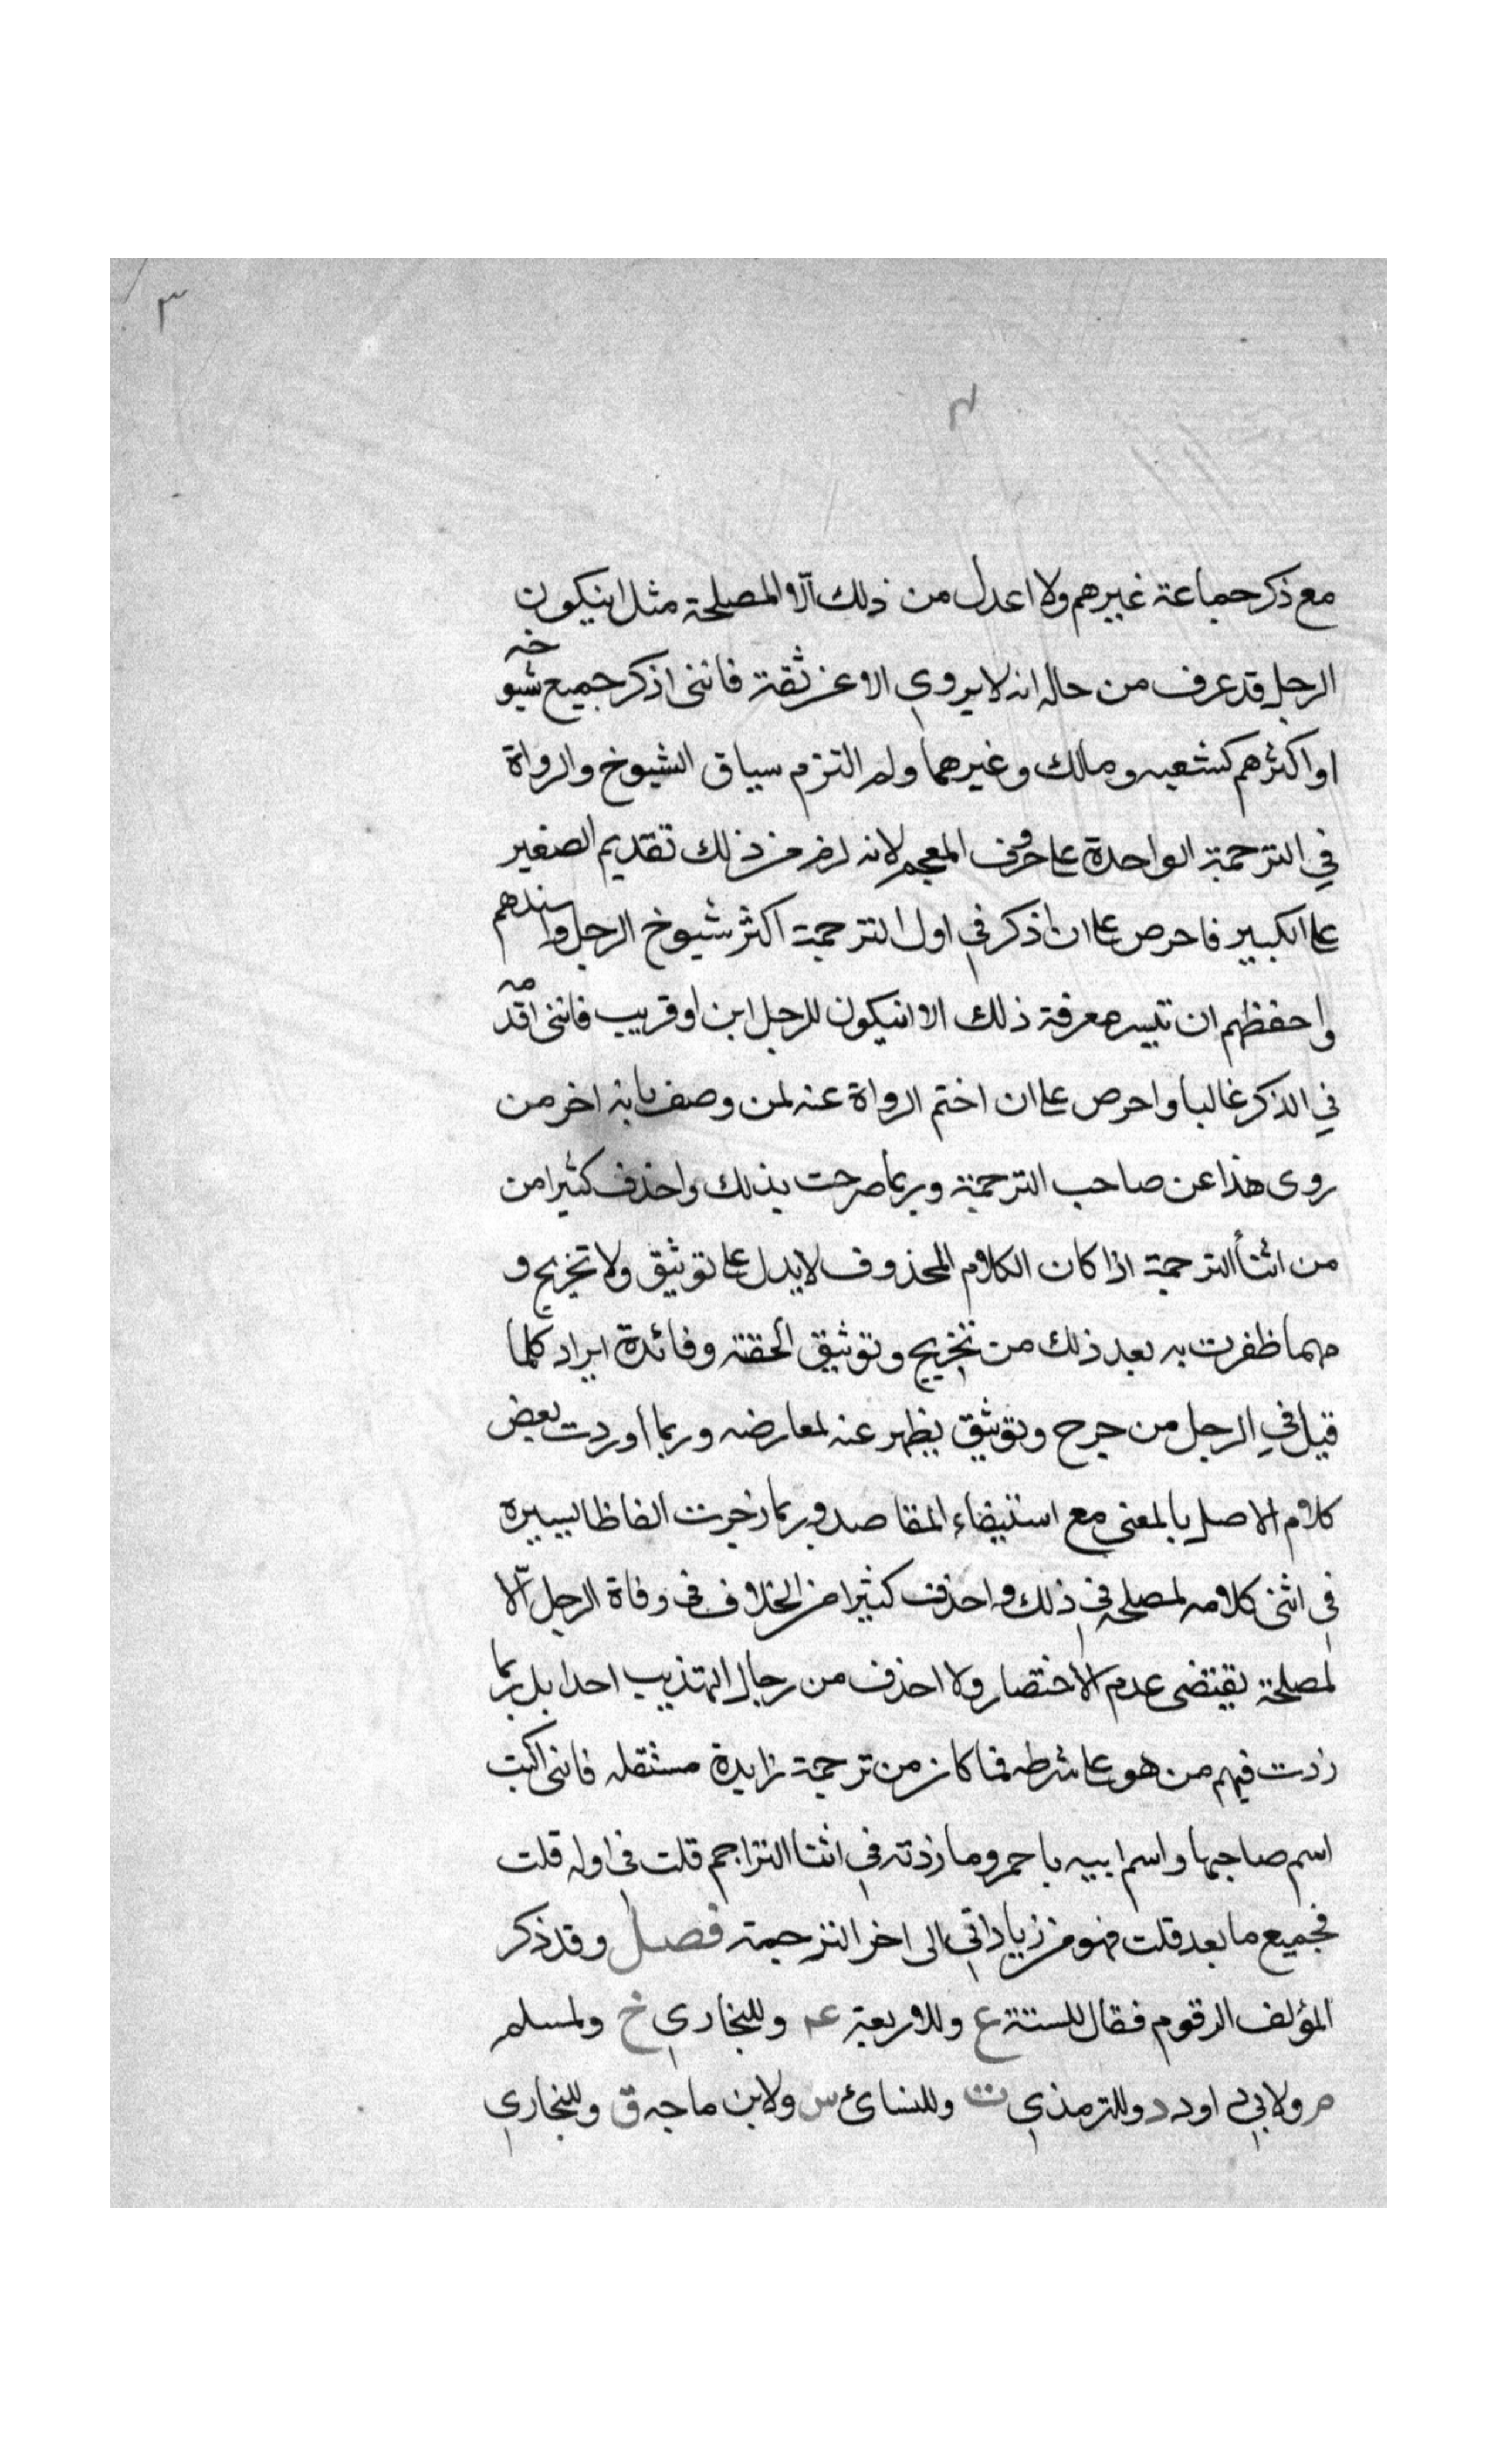 ٣
مع ذكر جماعة غيرهم ولا اعدل من ذلك الا لمصلحة مثل ان يكون
الرجل قد عرف من حاله انه لا يروي الا عن ثقة فانني اذكر جميع شيوخه
او اكثرهم كشعبه ومالك وغيرهما ولم التزم سياق الشيوخ والرواة
في الترجمة الواحدة على حروف المعجم لانه لزم من ذلك تقديم الصغير
على الكبير فاحرص على ان اذكر في اول الترجمة اكثر شيوخ الرجل واسندهم
واحفظهم ان تيسر معرفة ذلك الا ان يكون للرجل ابن او قريب فانني اقدمه
في الذكر غالبا واحرص على ان اختم الرواة عنه لمن وصف بانه اخر من
روى هذا عن صاحب الترجمة وربما صرحت بذلك واحذف كثيرا من
من اثنأ الترجمة اذا كان الكلام المحذوف لا يدل على توثيق ولا تجريح و
مهما ظفرت به بعد ذلك من تجريح وتوثيق الحقته وفائدة ايراد كلما
قيل في الرجل من جرح وتوثيق يظهر عنه لمعارضه وربما اوردت بعض
كلام الاصل بالمعنى مع استيفاء المقاصد وربما زدت الفاظا يسيرة
في اثنى كلامه لمصلحه في ذلك واحذف كثيرا من الخلاف في وفاة الرجل الّا
لمصلحة يقتضى عدم الاختصار ولا احذف من رجال التهذيب احدا بل ربما
زدت فيهم من هو على شرطه فما كان من ترجمة زايدة مستقله فانني اكتب
اسم صاحبها واسم ابيه باحمر وما زدته في اثنا التراجم قلت في اوله قلت
فجميع ما بعد قلت فهو من زياداتي الى اخر الترجمة فصل وقد ذكر
المؤلف الرقوم فقال للستة ع وللاربعة عم وللبخاري خ ولمسلم
م ولابي داود د وللترمذي ت وللنسائ س ولابن ماجه ق وللبخاري